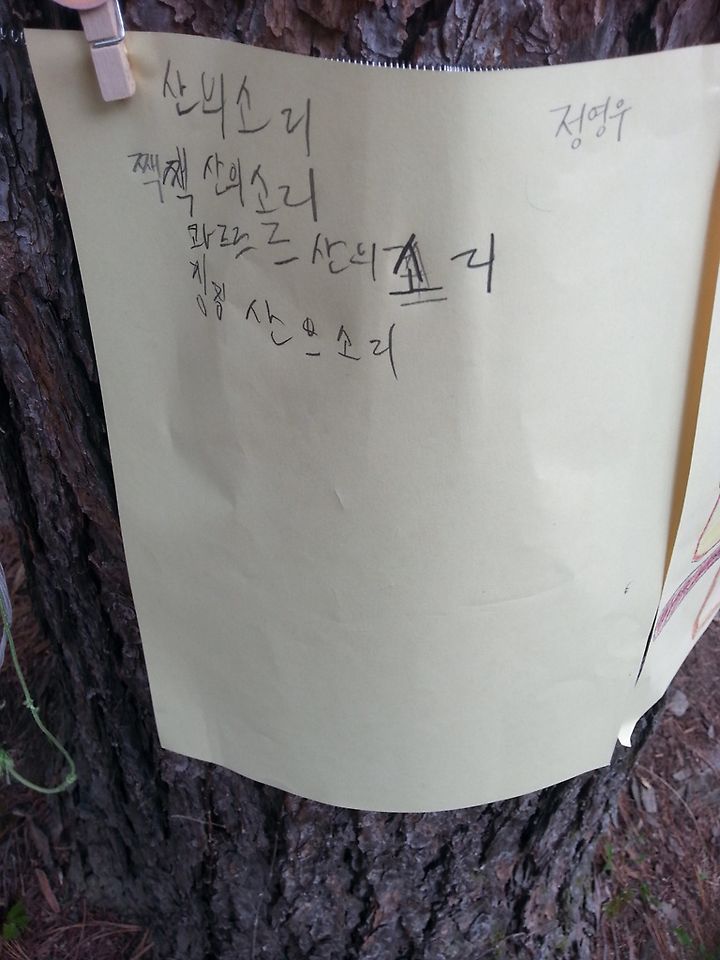 산의소리
정영우
짹짹 산의소리
콰르르 산의소리
징징 산으소리